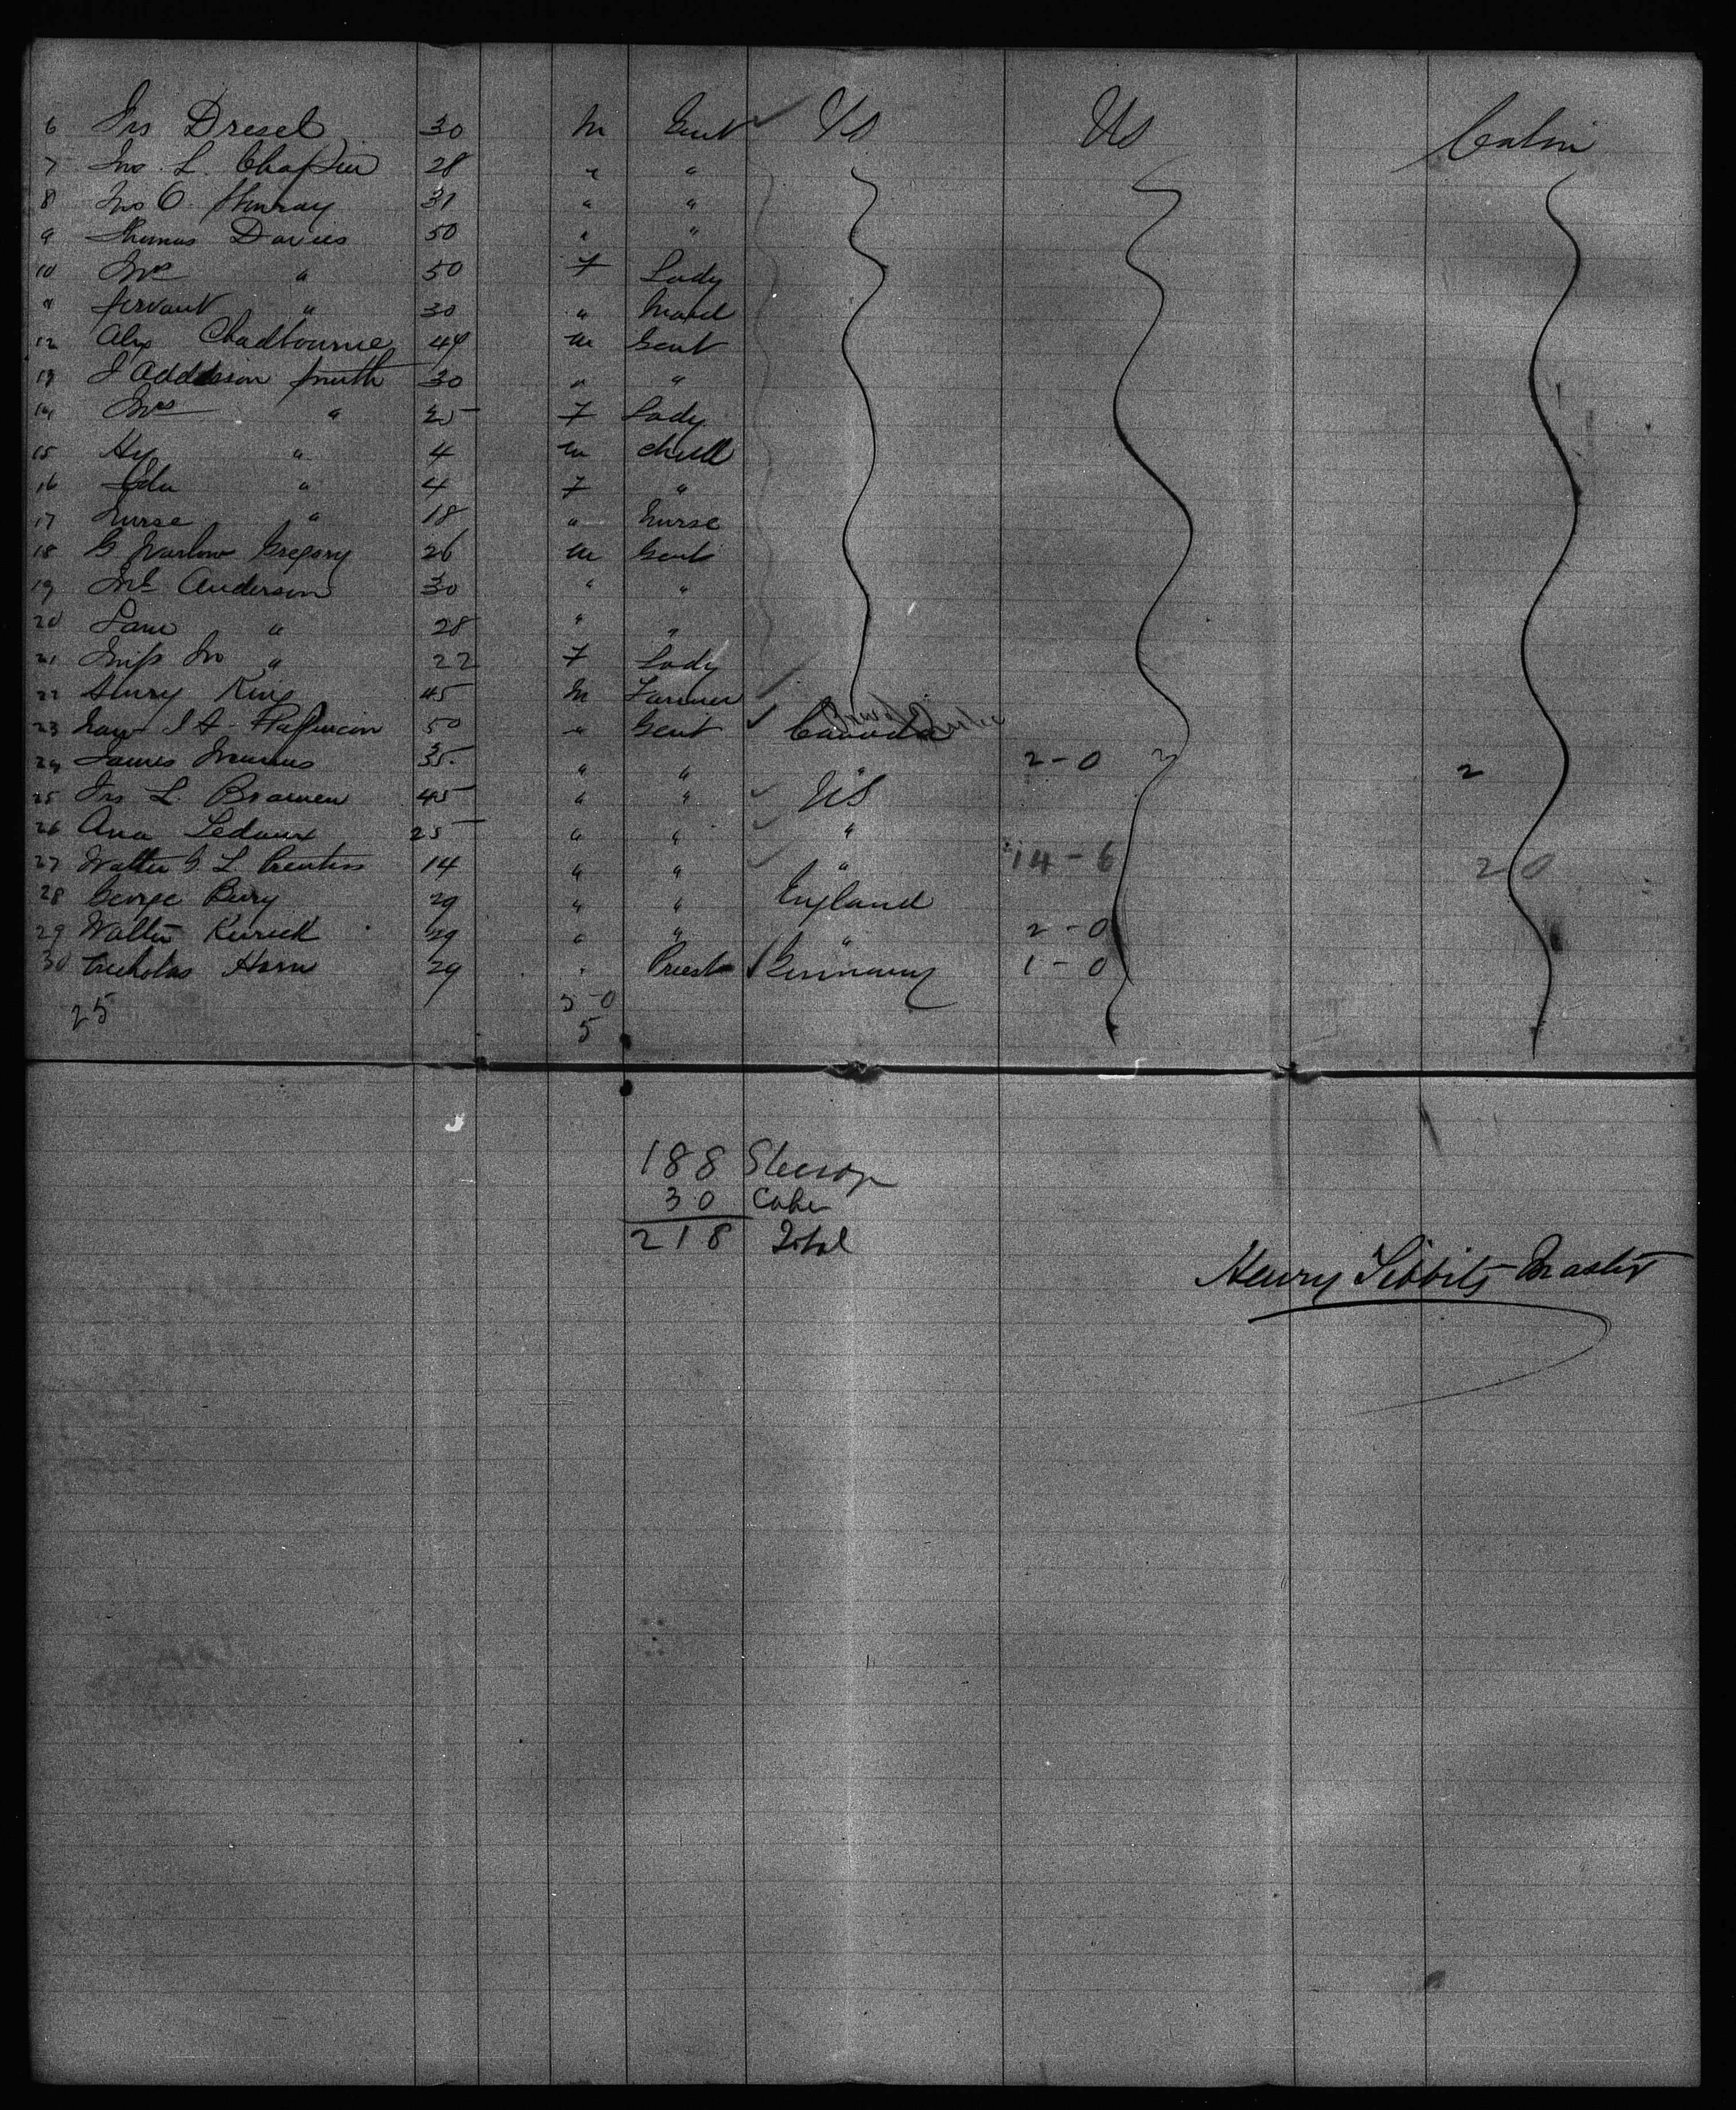 6 Jos Dresel 30 M Gent US US Cabin
7 Jno L. Chaffin 28 " "
8 Jno O. 31 " "
9 Thomas Davies 50 " "
10 Mrs " 50 F Lady
11 Servant " 30 " Maid
12 Alex Chadbourne 49 M Gent
13 J Addison Smith 30 " "
14 Mrs " 25 F Lady
15 Hy " 4 M Child
16 Ida " 4 F "
17 Nurse " 18 " Nurse
18 G Gregory 26 M Gent
19 Anderson 30 " "
20 Sam " 28 " "
21 Miss " 22 F Lady
22 Henry King 45 M Farmer
23 50 " Gent Canada
24 James 35 " " " 2-0 2
25 Jos L. 45 " " US
26 25 " " "
27 Walter L Prentiss 14 " " " 14-6 20
28 George Bury 29 " " England
29 Walter 29 " " " 2-0
30 Nicholas Horn 29 " Priest Germany 1-0
25 5-0
5
188 Steerage
30 Cabin
218 Total
Henry Tibbits Master